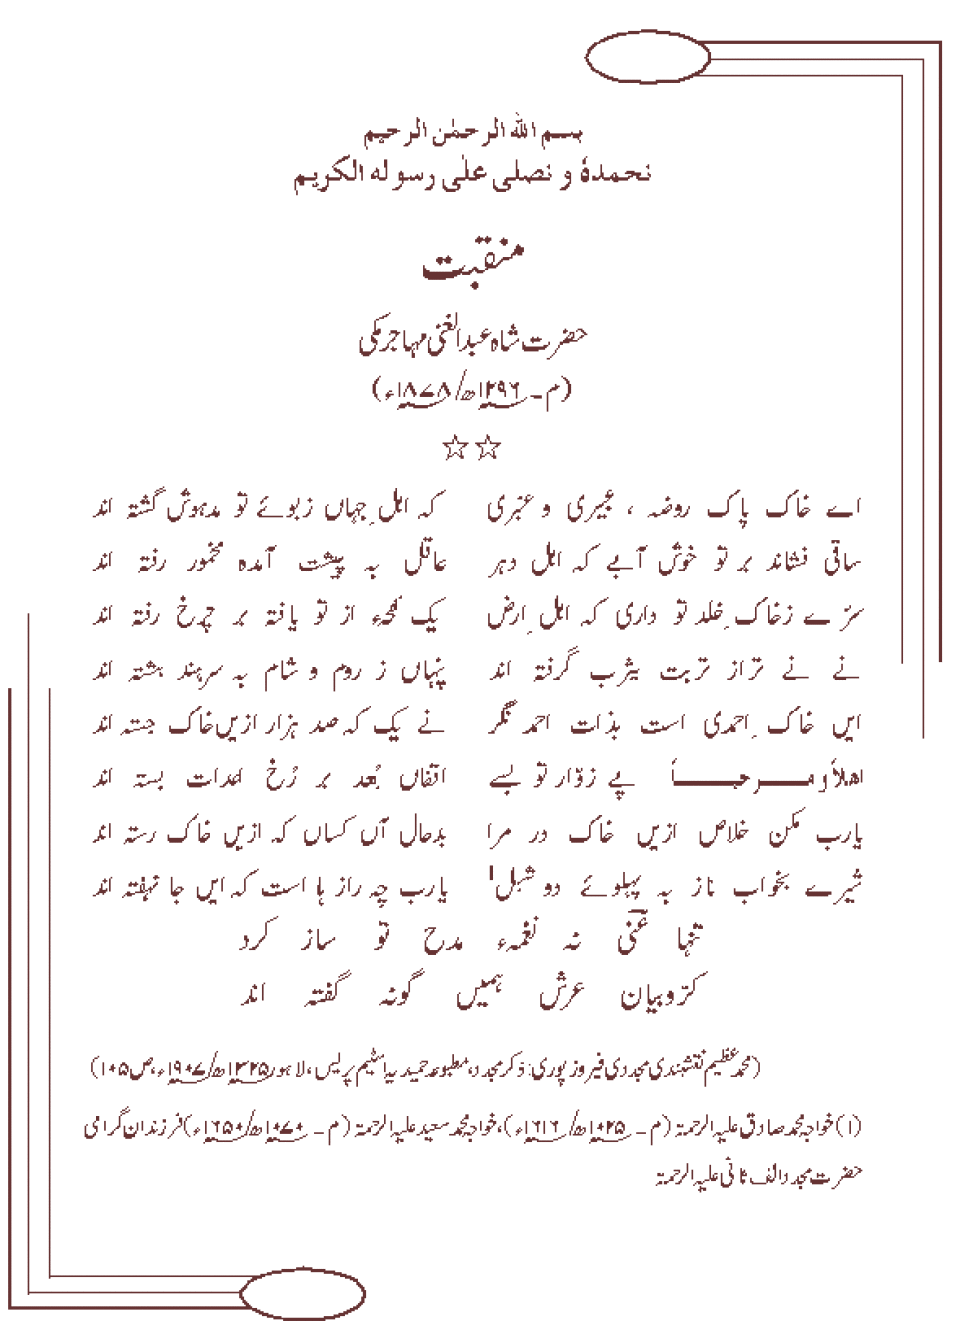 بسم اللہ الرحمٰن الرحیم
نحمدہٗ و نصلی علٰی رسولہ الکریم
منقبت
حضرت شاہ عبدالغنی مہاجر مکی
(م۔ ۱۲۹۶ھ/۱۸۷۸ء)
☆☆
اے خاک پاک روضہ ، عبیری و عنبری کہ اہلِ جہاں زبوئے تو مدہوش گشتہ اند
ساقی فشاند بر تو خوش آبے کہ اہل دہر عاقل بہ پیشت آمدہ مخمور رفتہ اند
سرّے زخاکِ خلد تو داری کہ اہلِ ارض یک لمحہء از تو یافتہ بر چرخ رفتہ اند
نے نے تراز تربت یثرب گرفتہ اند پنہاں ز روم و شام بہ سرہند ہشتہ اند
ایں خاکِ احمدی است بذات احمد نگر نے یک کہ صد ہزار ازیں خاک جستہ اند
اھلاً و مرحباً پے زوّار تو بسے بُعد بر رُخ بستہ اند
یارب مکن خلاص ازیں خاک در مرا بدحال آں کساں کہ ازیں خاک رستہ اند
شیرے بخواب ناز بہ پہلوئے دو شبل۱ یارب چہ راز ہا است کہ ایں جا نہفتہ اند
تنہا غنی نہ نغمہء مدح تو ساز کرد
کرّوبیان عرش ہمیں گونہ گفتہ اند
(محمد عظیم نقشبندی مجددی فیروز پوری: ذکر مجدد، مطبوعہ حمیدیہ اسٹیم پریس، لاہور ۱۳۲۵ھ/۱۹۰۷ء، ص ۱۰۵)
(۱) خواجہ محمد صادق علیہ الرحمۃ (م۔ ۱۰۲۵ھ/۱۶۱۶ء)، خواجہ محمد سعید علیہ الرحمۃ (م۔ ۱۰۷۰ھ/۱۶۵۰ء) فرزندان گرامی
حضرت مجدد الف ثانی علیہ الرحمۃ